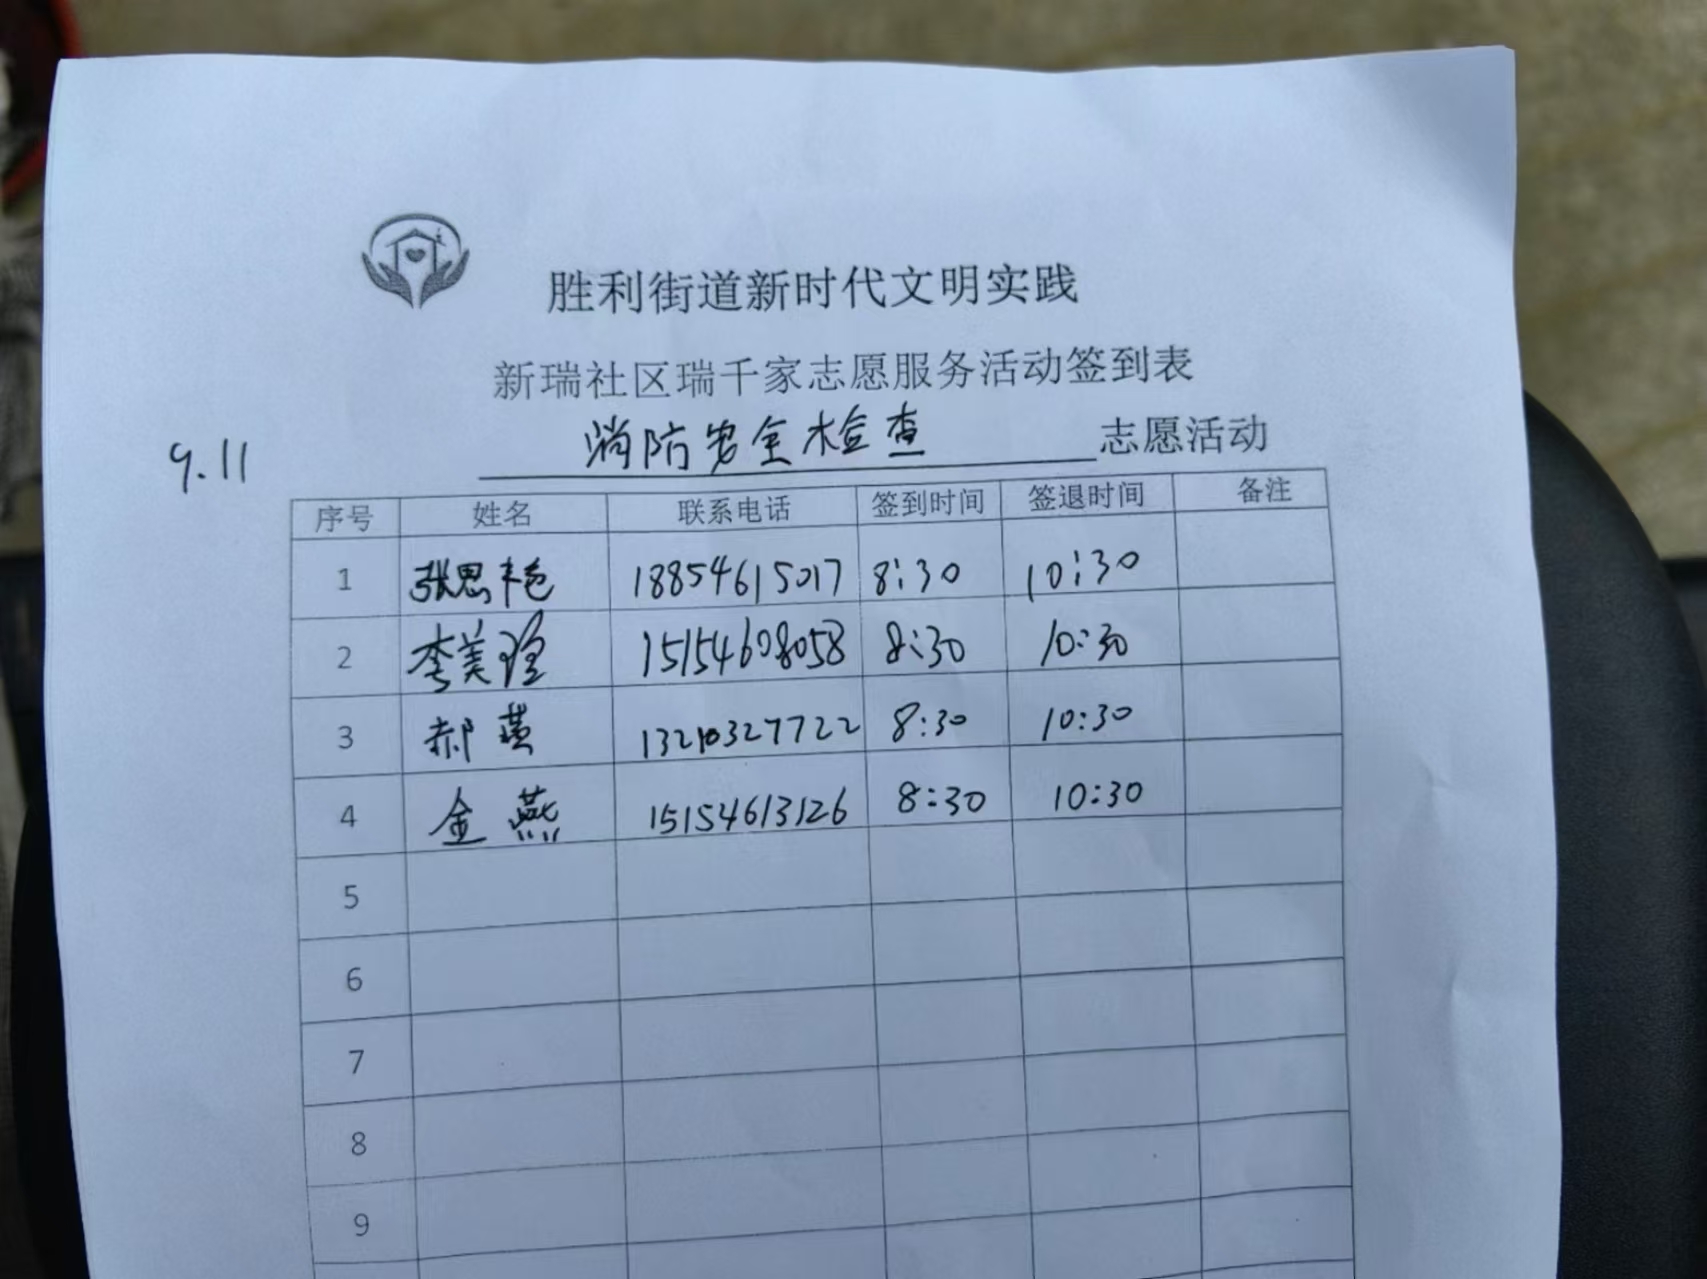 胜利街道新时代文明实践
新瑞社区瑞千家志愿服务活动签到表
9.11 消防安全检查 志愿活动
序号 姓名 联系电话 签到时间 签退时间 备注
1 张思艳 18854615017 8:30 10:30
2 李美 15154608058 8:30 10:30
3 郝 13210327722 8:30 10:30
4 金燕 15154613126 8:30 10:30
5
6
7
8
9